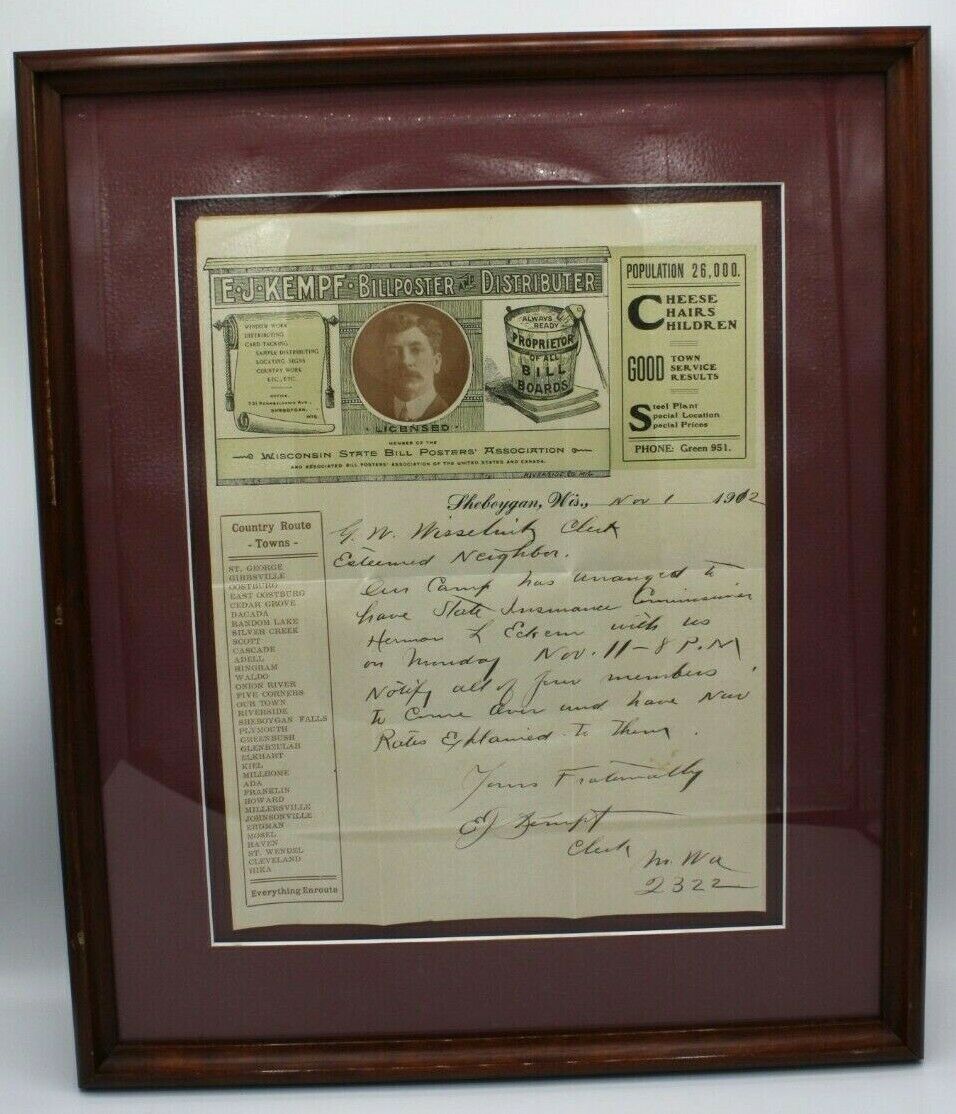 E·J·KEMPF·BILLPOSTER AND DISTRIBUTER
WINDOW WORK
DISTRIBUTING
CARD TACKING
SAMPLE DISTRIBUTING
LOCATING SIGNS
COUNTRY WORK
ETC., ETC.
OFFICE
731 PENNSYLVANIA AVE.,
SHEBOYGAN, WIS.
·LICENSED·
ALWAYS READY
PROPRIETOR
OF ALL
BILL
BOARDS
MEMBER OF THE
WISCONSIN STATE BILL POSTERS' ASSOCIATION
AND ASSOCIATED BILL POSTERS' ASSOCIATION OF THE UNITED STATES AND CANADA.
RIVERSIDE CO. MIL.
POPULATION 26,000.
CHEESE
CHAIRS
CHILDREN
GOOD TOWN
SERVICE
RESULTS
Steel Plant
Special Location
Special Prices
PHONE: Green 951.
Sheboygan, Wis., Nov 1 1912
Country Route
- Towns -
ST. GEORGE
GIBBSVILLE
OOSTBURG
EAST OOSTBURG
CEDAR GROVE
DACADA
RANDOM LAKE
SILVER CREEK
SCOTT
CASCADE
ADELL
HINGHAM
WALDO
ONION RIVER
FIVE CORNERS
OUR TOWN
RIVERSIDE
SHEBOYGAN FALLS
PLYMOUTH
GREENBUSH
GLENBEULAH
ELKHART
KIEL
MILLHOME
ADA
FRANKLIN
HOWARD
MILLERSVILLE
JOHNSONVILLE
ERDMAN
MOSEL
HAVEN
ST. WENDEL
CLEVELAND
HIKA
Everything Enroute
G. W. Clerk
Esteemed Neighbor.
Our Camp has arranged to
have State Insurance Commissioner
Herman L Ekern with us
on Monday Nov. 11 - 8 P.M
Notify all of your members
to come over and have New
Rates Explained to them.
Yours Fraternally
EJ Kempf
Clerk M.W.A
2322